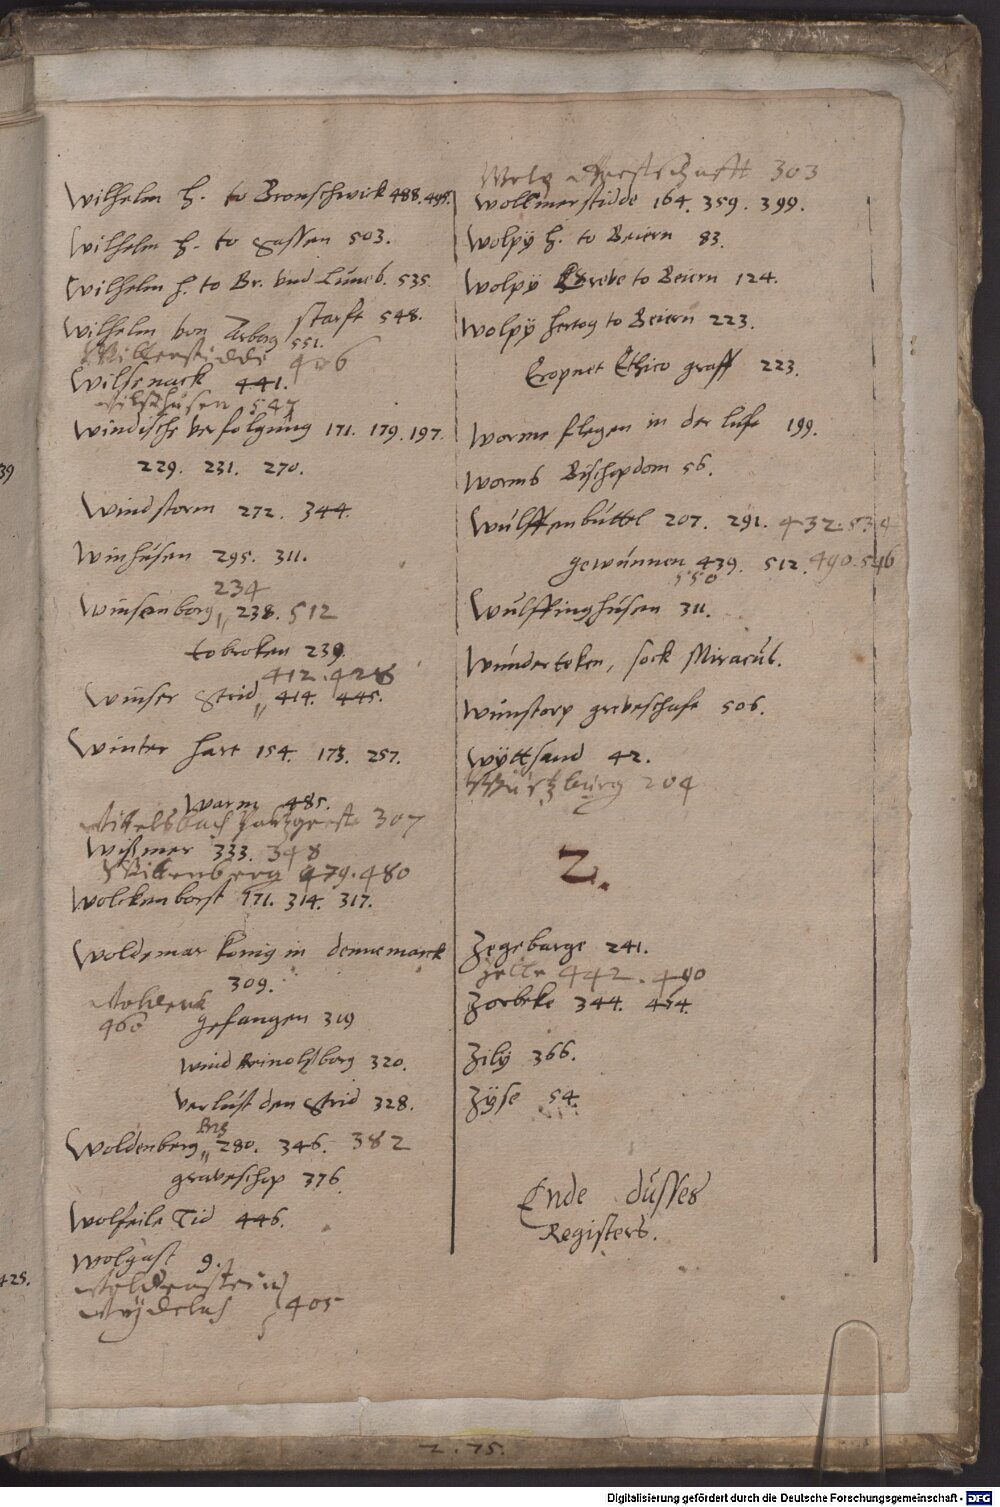 Wilhelm h. to Bronschwick 488. 495.
Wilhelm h. to Sassen 503.
Wilhelm h. to Br. vnd Lüneb. 535.
Wilhelm von Arberg starff 548.
551.
406
Wilsenack 441.
547
Windische verfolgung 171. 179. 197.
229. 231. 270.
Windstorm 272. 344.
Winhusen 295. 311.
234
Winsenborg 238. 512
tobroken 239.
412. 428
Winser Strid 414. 445.
Winter hart 154. 173. 257.
Warm 485.
Wittelsbach 307
Wißmer 333. 348
Wittenberg 479. 480
Wolckenborst 171. 314. 317.
Woldemar konig in dennemarck
309.
460 gefangen 319
wind Reinoltzborg 320.
verlüst den Strid 328.
Brg
Woldenberg 280. 346. 382
graveschop 376
Wolfeile Tid 446.
Wolgast 9.
405
303
Wollmerstidde 164. 359. 399.
Wolpÿ h. to Beiern 83.
Wolpÿ Greve to Beiern 124.
Wolpÿ hertog to Beiern 223.
Eropnet Ethico graff 223.
Worme flegen in der luft 199.
Wormb Bischopdom 56.
Wulffenbüttel 207. 291. 432. 534
gewunnen 439. 512. 490. 546
550
Wulffinghusen 311.
Wunderteken, sock Miracül.
Wunstorp greveschaft 506.
Wÿttsand 42.
Würtzburg 204
Z.
Zegebarge 241.
Zelle 442. 490
Zorbeke 344. 454.
Zilÿ 366.
Zÿse 54.
Ende düsses
Registers.
39
425.
2. 75.
Digitalisierung gefördert durch die Deutsche Forschungsgemeinschaft - DFG